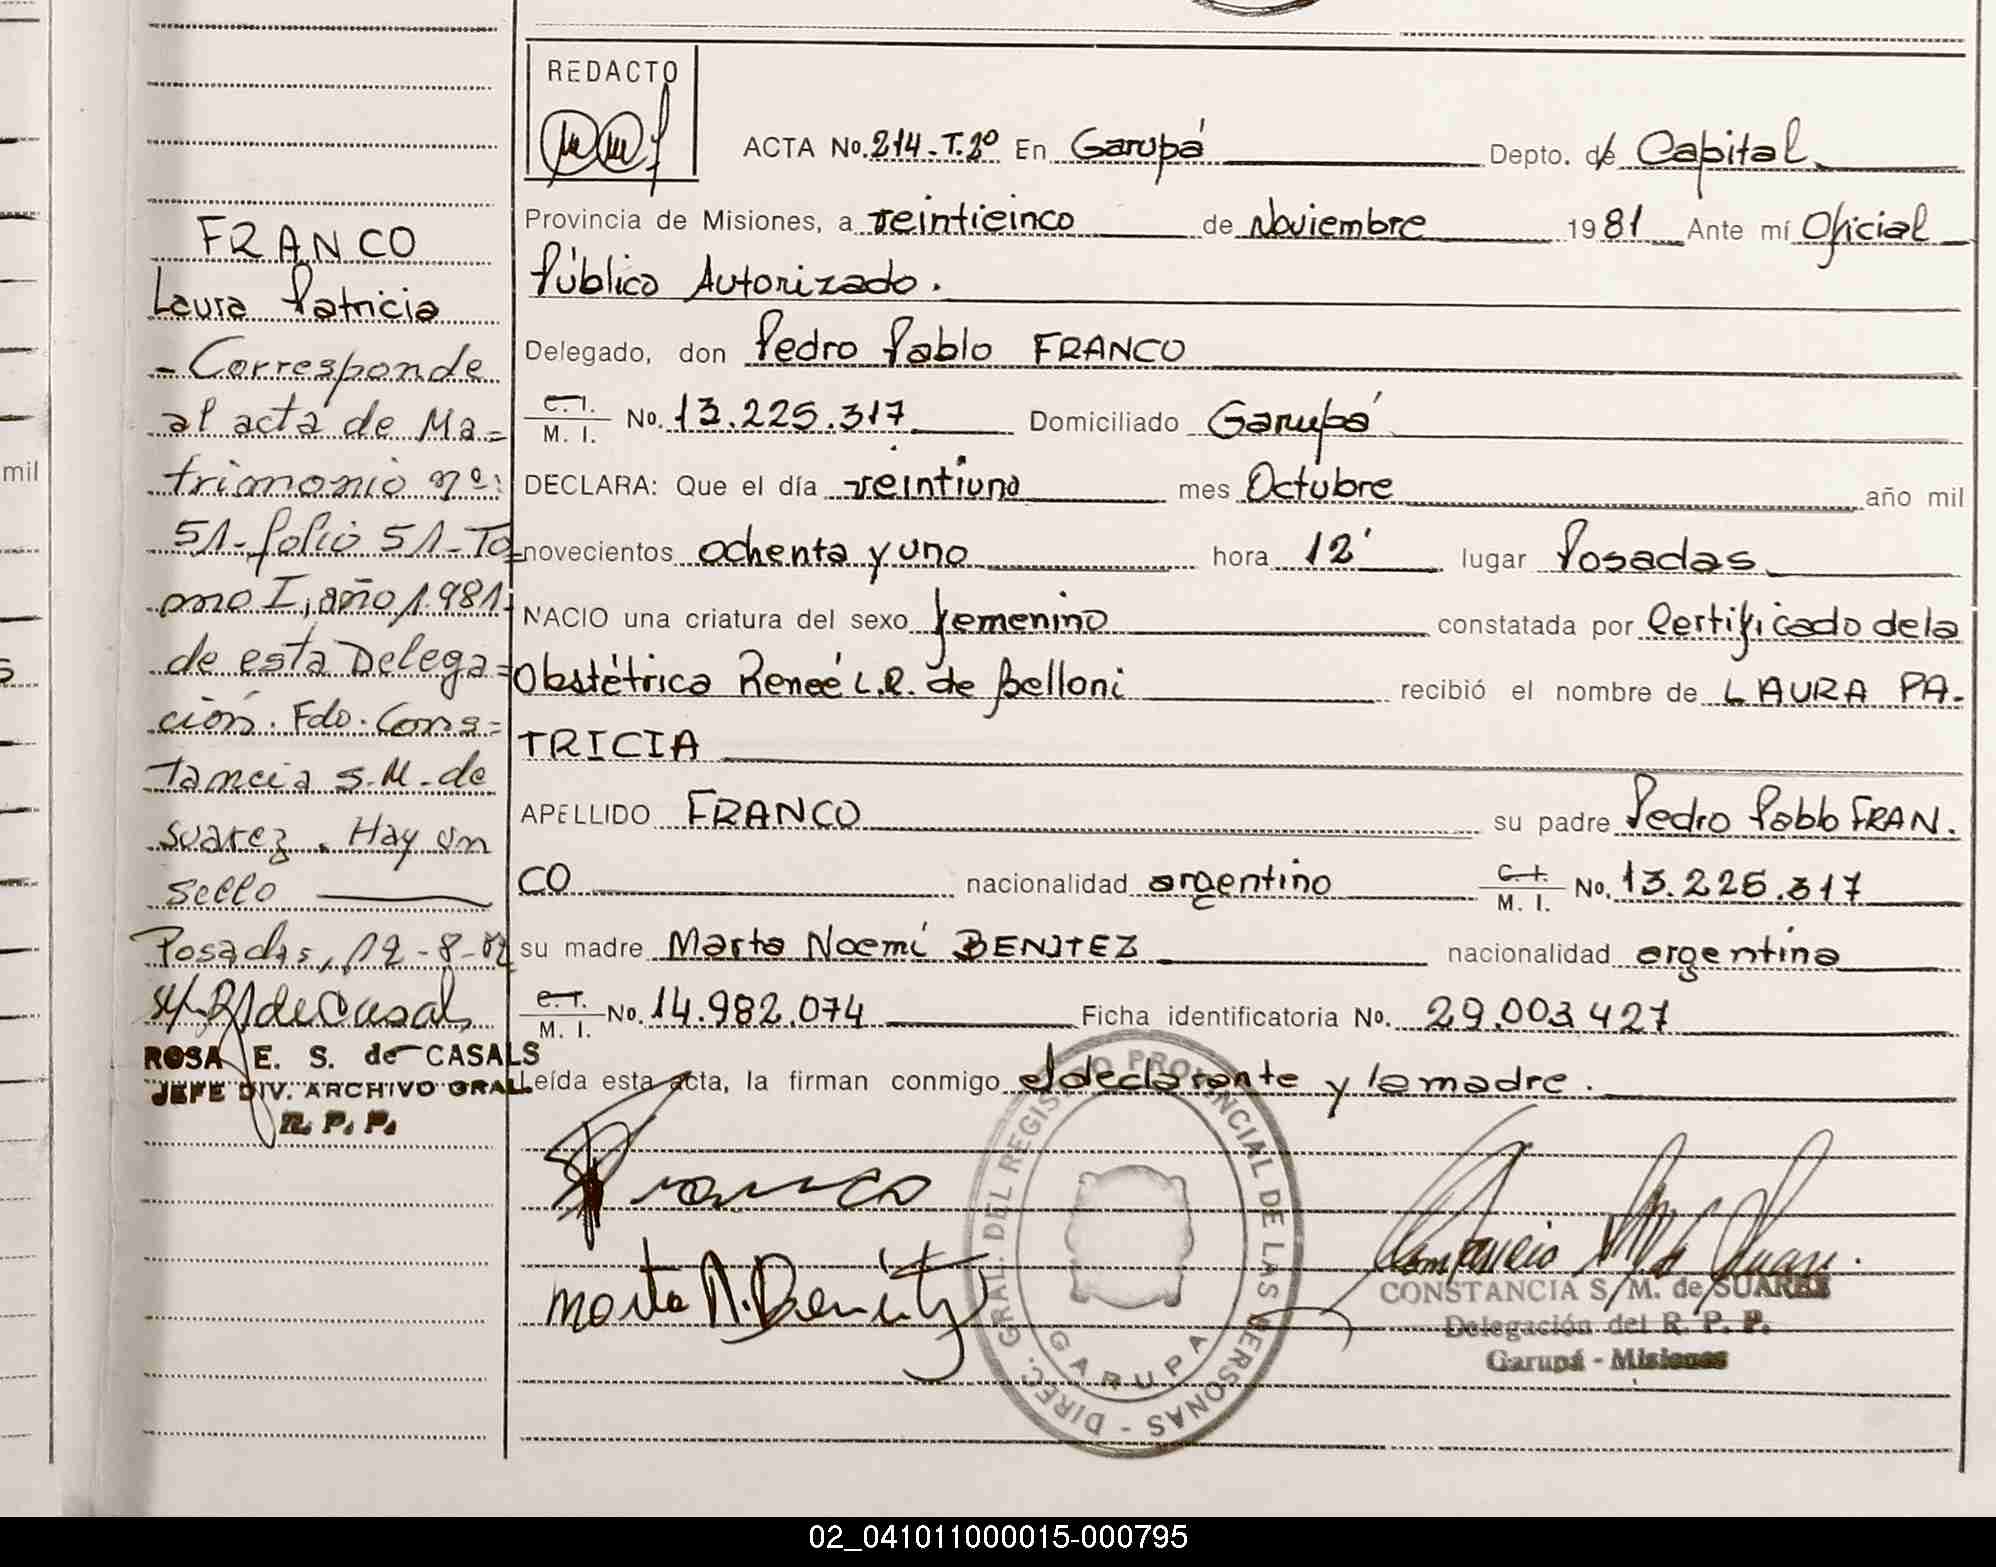 REDACTO
ACTA No. 214-T.2º En Garupá Depto. de Capital
Provincia de Misiones, a veinticinco de Noviembre 1981 Ante mí Oficial
Público Autorizado.
Delegado, don Pedro Pablo FRANCO
C.I. M. I. No. 13.225.317 Domiciliado Garupá
DECLARA: Que el día veintiuno mes Octubre año mil
novecientos ochenta y uno hora 12' lugar Posadas
NACIO una criatura del sexo femenino constatada por Certificado de la
Obstétrica Reneé L.R. de Belloni recibió el nombre de LAURA PA-
TRICIA
APELLIDO FRANCO su padre Pedro Pablo FRAN-
CO nacionalidad argentino C.I. M. I. No. 13.225.317
su madre Marta Noemí BENITEZ nacionalidad argentina
C.I. M. I. No. 14.982.074 Ficha identificatoria No. 29.003.427
Leída esta acta, la firman conmigo el declarante y la madre.
Franco
Marta N. Benitez
CONSTANCIA S. M. de SUAREZ
Delegación del R. P. P.
Garupá - Misiones
DIREC. GRAL. DEL REGISTRO PROVINCIAL DE LAS PERSONAS -
GARUPA
FRANCO
Laura Patricia
- Corresponde
al acta de Ma=
trimonio nº:
51- folio 51- To=
omo I, año 1.981-
de esta Delega=
ción. Fdo. Cons=
tancia S.M. de
Suarez. Hay un
sello
Posadas, 12-8-82
ROSA E. S. de CASALS
JEFE DIV. ARCHIVO GRAL.
R. P. P.
mil
02_041011000015-000795